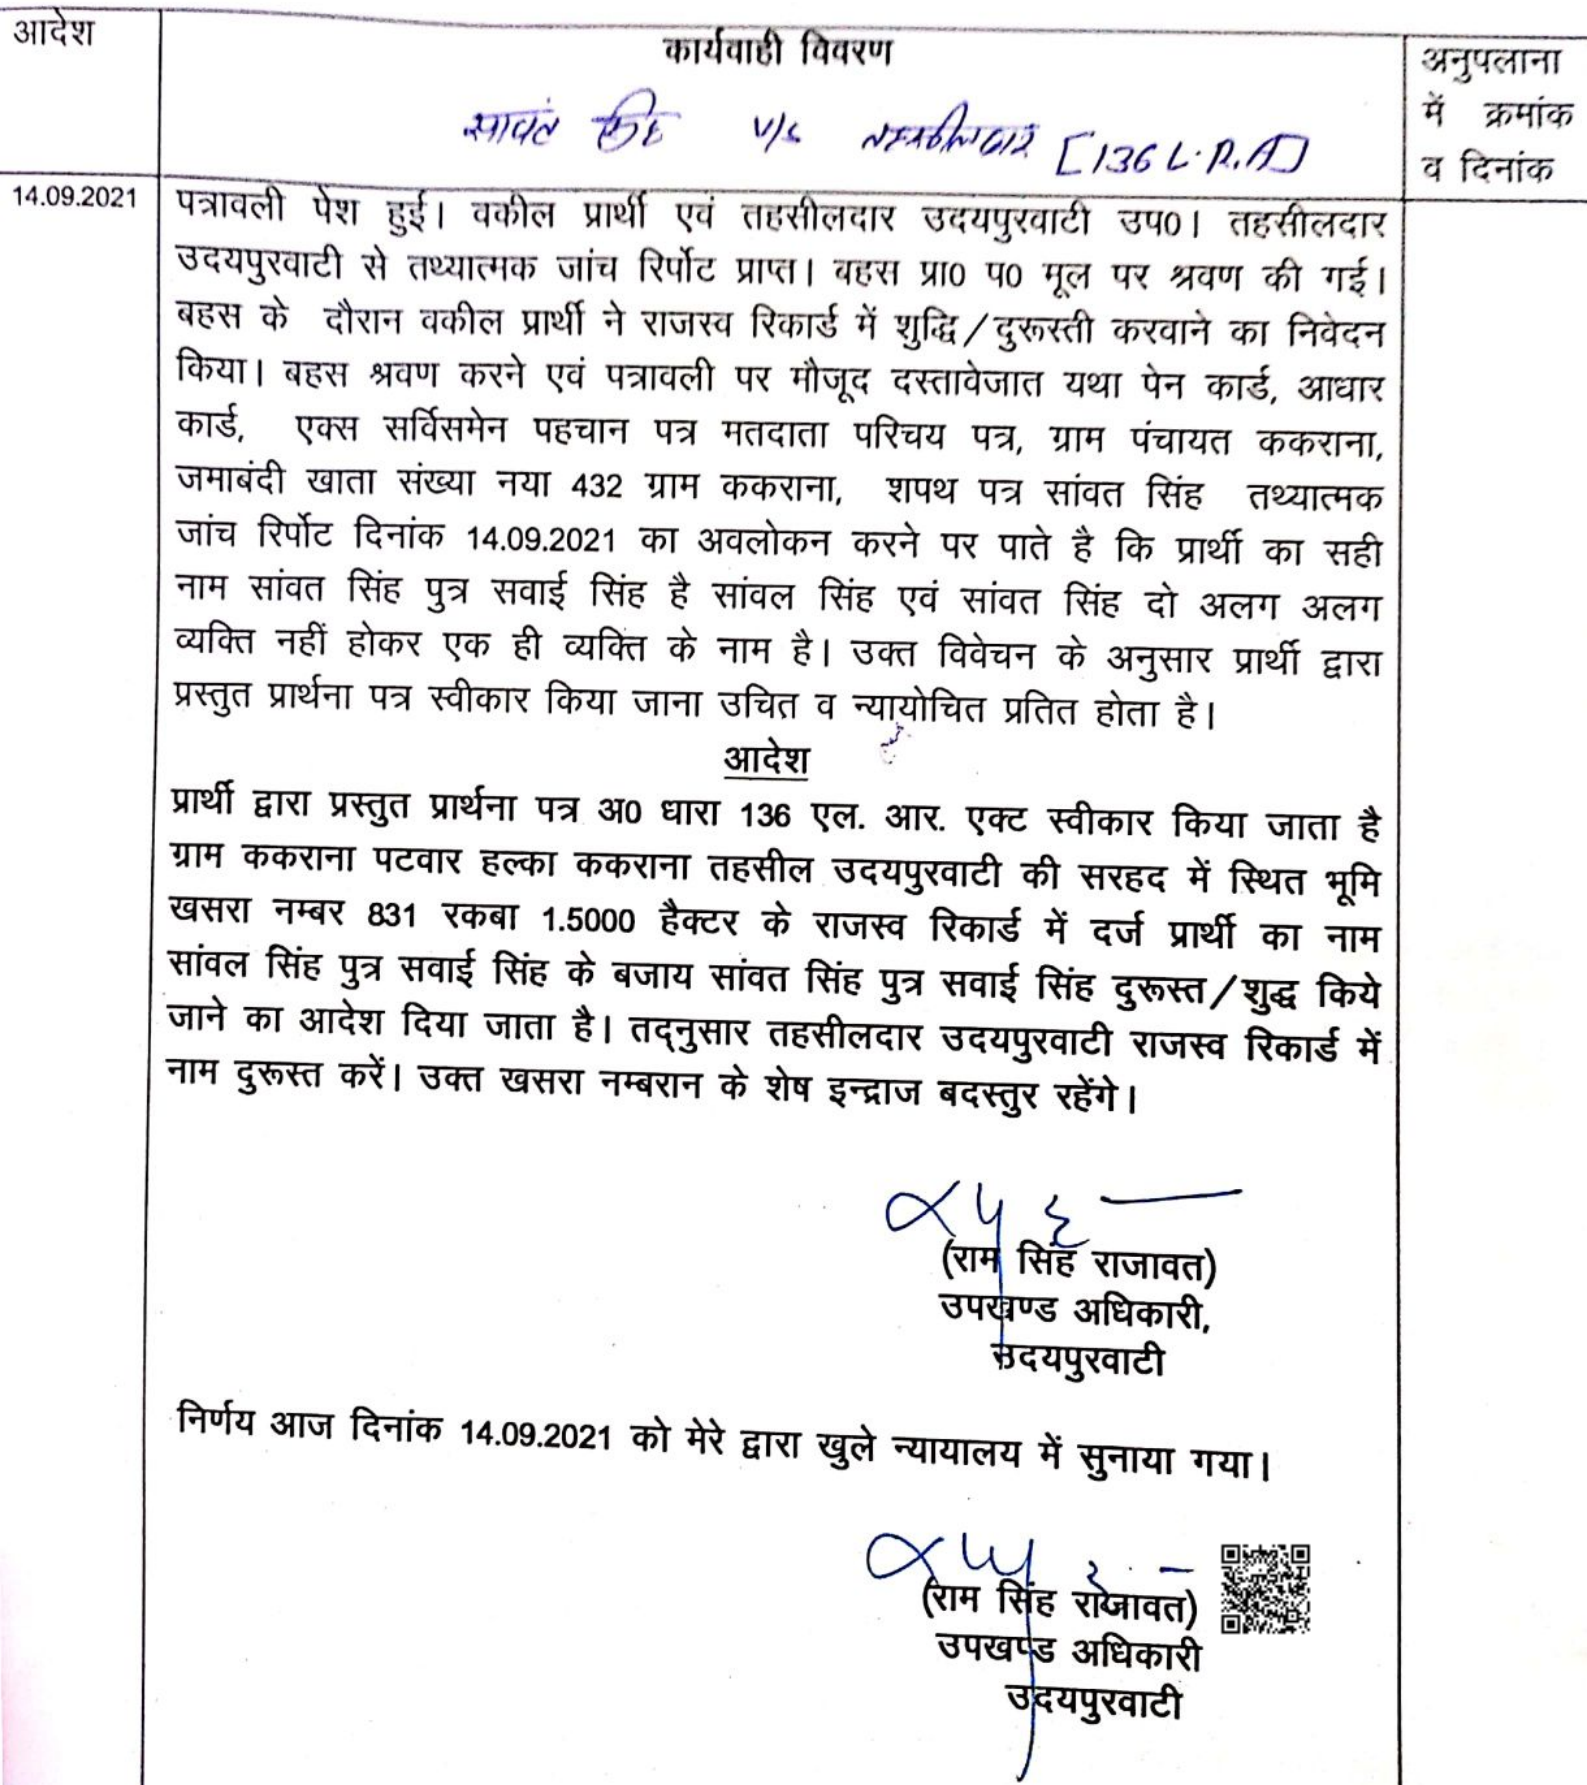 आदेश
कार्यवाही विवरण
अनुपलाना
में क्रमांक
व दिनांक
सावंत सिंह v/s तहसीलदार [136 L.R.A]
14.09.2021
पत्रावली पेश हुई। वकील प्रार्थी एवं तहसीलदार उदयपुरवाटी उप0। तहसीलदार
उदयपुरवाटी से तथ्यात्मक जांच रिर्पोट प्राप्त। बहस प्रा0 प0 मूल पर श्रवण की गई।
बहस के दौरान वकील प्रार्थी ने राजस्व रिकार्ड में शुद्धि/दुरूस्ती करवाने का निवेदन
किया। बहस श्रवण करने एवं पत्रावली पर मौजूद दस्तावेजात यथा पेन कार्ड, आधार
कार्ड, एक्स सर्विसमेन पहचान पत्र मतदाता परिचय पत्र, ग्राम पंचायत ककराना,
जमाबंदी खाता संख्या नया 432 ग्राम ककराना, शपथ पत्र सांवत सिंह तथ्यात्मक
जांच रिर्पोट दिनांक 14.09.2021 का अवलोकन करने पर पाते है कि प्रार्थी का सही
नाम सांवत सिंह पुत्र सवाई सिंह है सांवल सिंह एवं सांवत सिंह दो अलग अलग
व्यक्ति नहीं होकर एक ही व्यक्ति के नाम है। उक्त विवेचन के अनुसार प्रार्थी द्वारा
प्रस्तुत प्रार्थना पत्र स्वीकार किया जाना उचित व न्यायोचित प्रतित होता है।
आदेश
प्रार्थी द्वारा प्रस्तुत प्रार्थना पत्र अ0 धारा 136 एल. आर. एक्ट स्वीकार किया जाता है
ग्राम ककराना पटवार हल्का ककराना तहसील उदयपुरवाटी की सरहद में स्थित भूमि
खसरा नम्बर 831 रकबा 1.5000 हैक्टर के राजस्व रिकार्ड में दर्ज प्रार्थी का नाम
सांवल सिंह पुत्र सवाई सिंह के बजाय सांवत सिंह पुत्र सवाई सिंह दुरूस्त/शुद्ध किये
जाने का आदेश दिया जाता है। तद्नुसार तहसीलदार उदयपुरवाटी राजस्व रिकार्ड में
नाम दुरूस्त करें। उक्त खसरा नम्बरान के शेष इन्द्राज बदस्तुर रहेंगे।
(राम सिंह राजावत)
उपखण्ड अधिकारी,
उदयपुरवाटी
निर्णय आज दिनांक 14.09.2021 को मेरे द्वारा खुले न्यायालय में सुनाया गया।
(राम सिंह राजावत)
उपखण्ड अधिकारी
उदयपुरवाटी